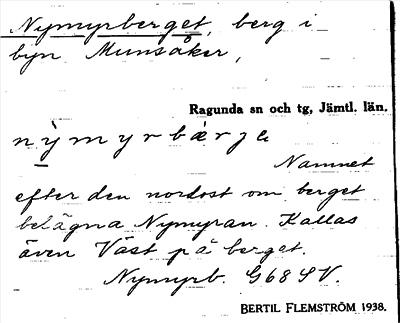 Nymyrberget, berg i
byn Munsåker,
Ragunda sn och tg, Jämtl. län.
Namnet
efter den nordost om berget
belägna Nymyran. Kallas
även Väst på berget.
Nymyrb. G68SV.
BERTIL FLEMSTRÖM 1938.